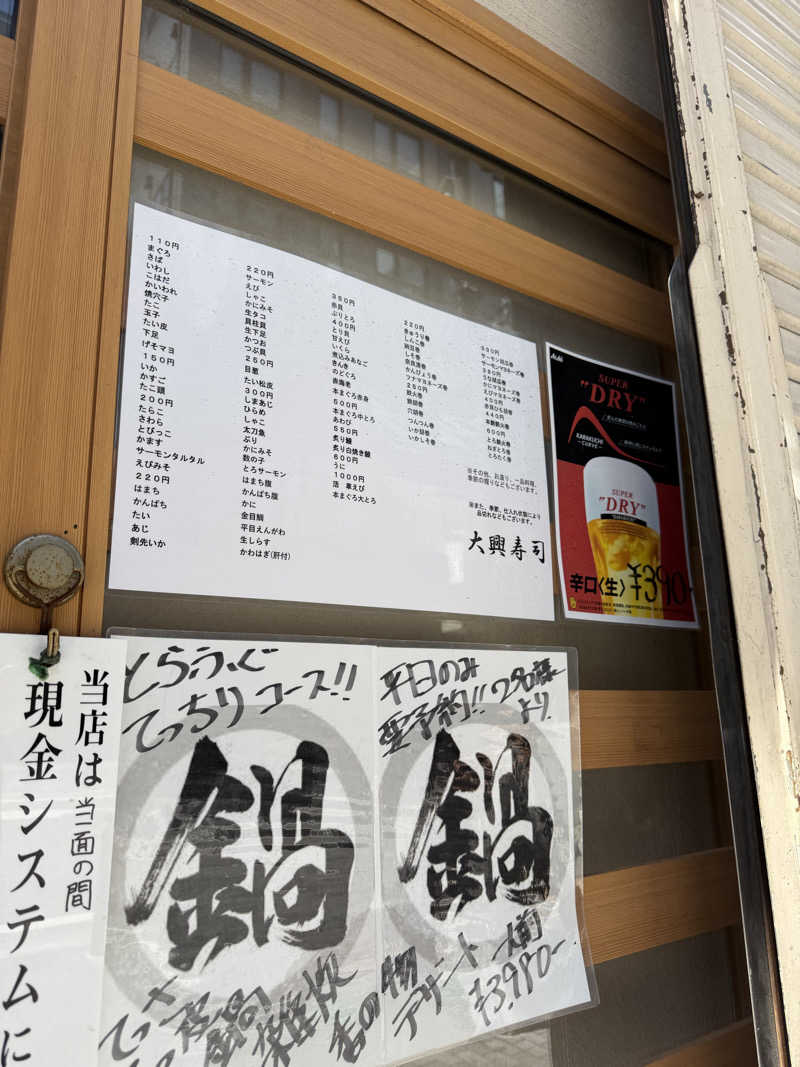 110円
まぐろ
さば
いわし
こはだ
かいわれ
焼穴子
たこ
玉子
たい皮
下足
げそマヨ
150円
いか
かすご
たこ頭
200円
たらこ
さわら
とびっこ
かます
サーモンタルタル
えびみそ
220円
はまち
かんぱち
たい
あじ
剣先いか
220円
サーモン
えび
しゃこ
かにみそ
生タコ
貝柱貝
生下足
かつお
つぶ貝
250円
目鯛
たい松皮
300円
しまあじ
ひらめ
しゃこ
太刀魚
ぶり
かにみそ
数の子
とろサーモン
はまち腹
かんぱち腹
かに
金目鯛
平目えんがわ
生しらす
かわはぎ(肝付)
350円
赤貝
ぶりとろ
400円
とり貝
甘えび
いくら
煮込みあなご
きんき
のどぐろ
本まぐろ赤身
500円
本まぐろ中とろ
あわび
550円
炙り鰻
炙り白焼き鰻
600円
うに
1000円
活 車えび
本まぐろ大とろ
220円
きゅうり巻
しんこ巻
納豆巻
しそ巻
奈良漬巻
かんぴょう巻
ツナマヨネーズ巻
250円
鉄火巻
穴胡巻
つんつん巻
いか胡巻
いかしそ巻
330円
サーモン胡瓜巻
サーモンマヨネーズ巻
380円
うな胡瓜巻
かにマヨネーズ巻
えびマヨネーズ巻
400円
赤貝ひも胡巻
440円
本鮪鉄火巻
600円
とろ鉄火巻
ねぎとろ巻
とろたく巻
※その他、お造り、一品料理、
季節の握りなどもございます。
※また、季節、仕入れ状態により
品切れなどもございます。
大興寿司
Asahi
SUPER
"DRY"
KARAKUCHI
CURVE
SUPER
"DRY"
辛口〈生〉¥390-
当店は当面の間
現金システムに
とらふぐ
てっちりコース!!
鍋
てっさ
雑炊
平日のみ
要予約!!2名様
より
鍋
香の物
デザート
一人前
¥3,980-